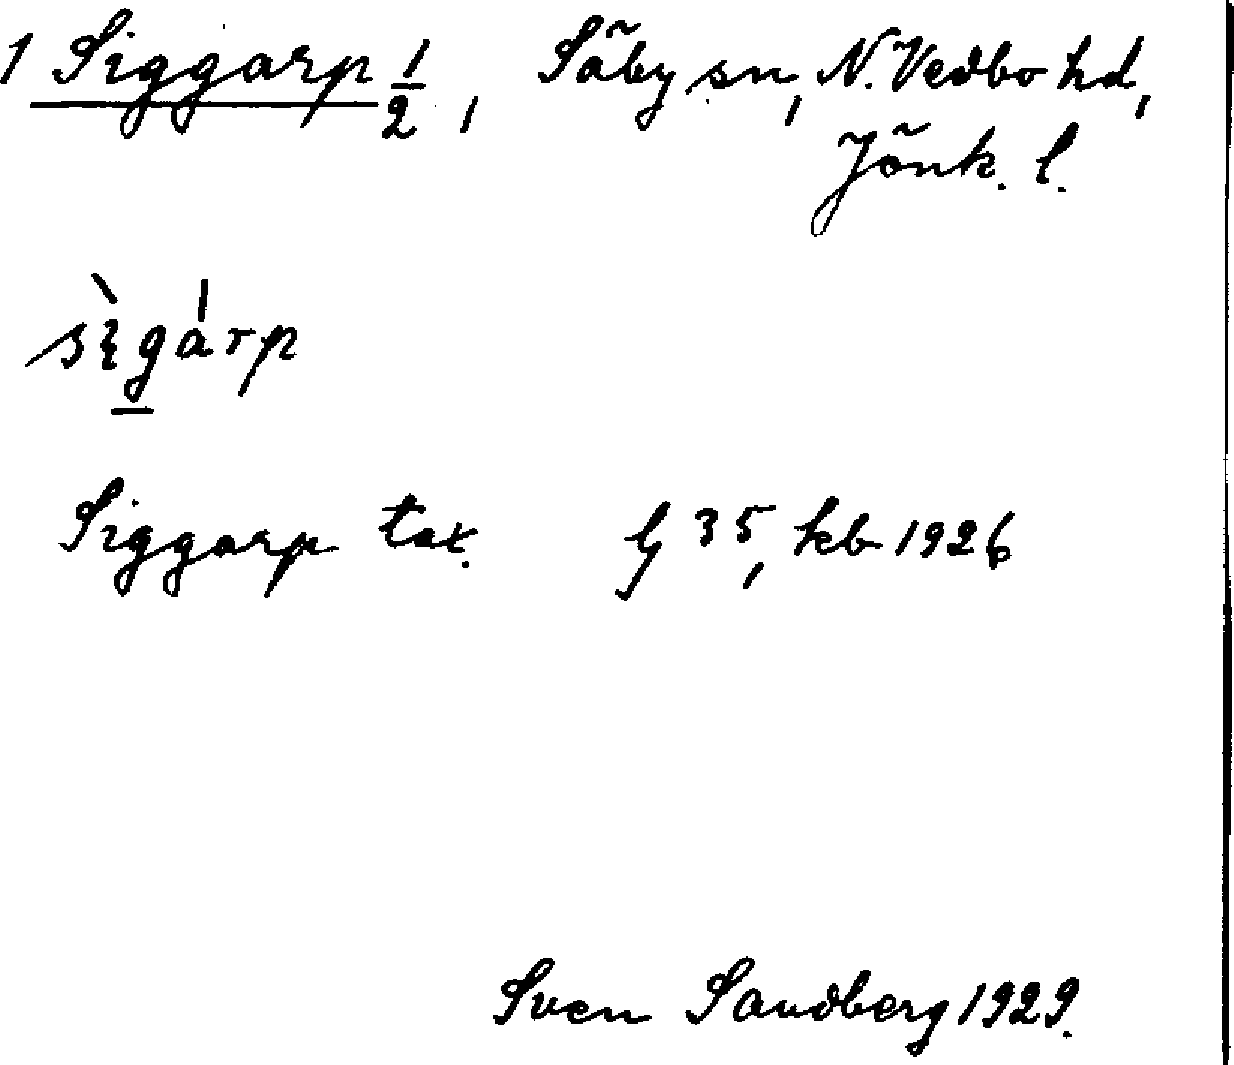 1 Siggarp 1/2, Säby sn, N. Vedbo hd,
Jönk. l.
sìgárp
Siggarp tax. G 35, kb 1926
Sven Sandberg 1929.